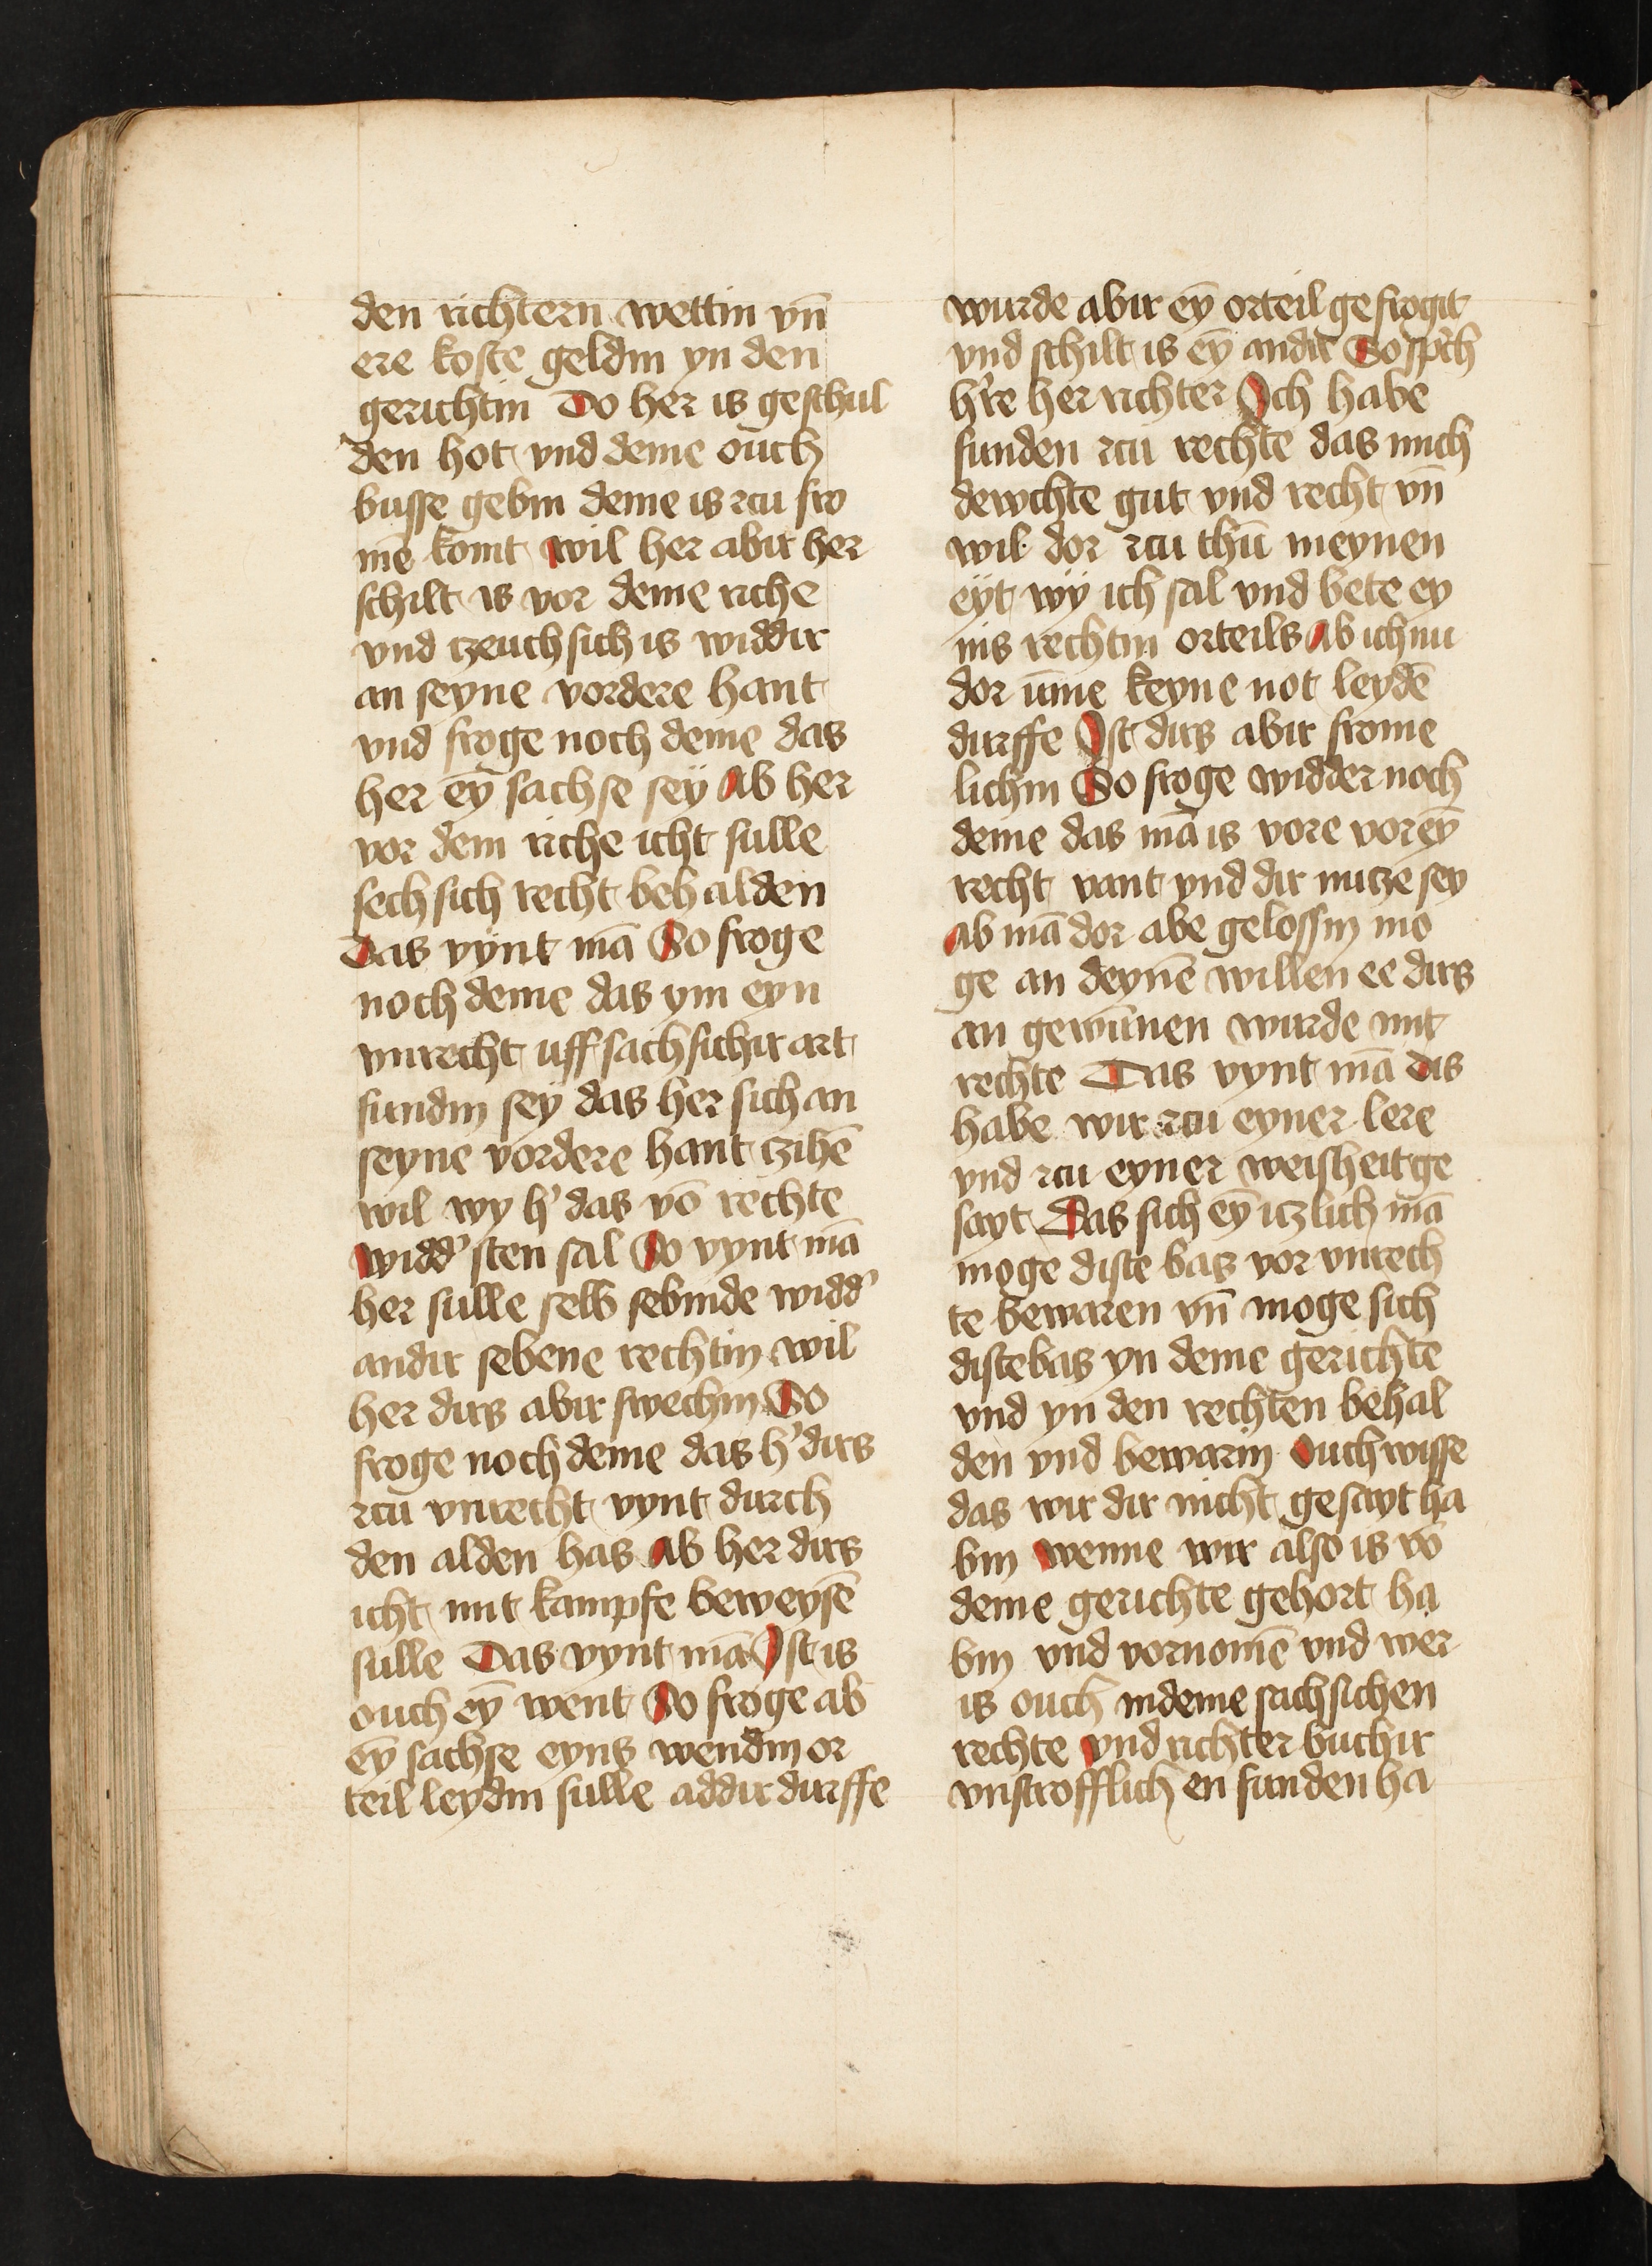 den richtern wettin vn̄
ere koste geldin yn den
gerichtin Do her is geschul
den hot vnd deme ouch
busse gebin deme is zcu fro
mē komt wil her abir her
schilt is vor deme riche
vnd tzeuch sich is widdir
an seyne vordere hant
vnd froge noch deme das
her eȳ sachse seÿ Ab her
vor dem riche icht sulle
sech sich recht behalden
Das vÿnt mā So froge
noch deme das ym eyn
vnrecht uff sachsichir art
fundin seÿ das her sich an
seyne vordere hant tzihē
wil wy h' das vō rechte
widd' sten sal So vynt mā
her sulle selb sebinde widd'
andir sebene rechtin wil
her dirs abir swechin So
froge noch deme das h' dirs
zcu vnrecht vynt durch
den alden has Ab her dirs
icht mit kampfe beweysē
sulle Das vynt mā Ist is
ouch eȳ went So froge ab
eȳ sachse eyns wendin or
teil leydin sulle addir durffe
wurde abir eȳ orteil gefrogit
vnd schilt is eȳ andir So sprich
h're her richter Ich habe
funden zcu rechte das mich
dewchte gut vnd recht vn̄
wil dor zcu thū meynen
eÿt wÿ ich sal vnd bete ey
nis rechtin orteils Ab ich nu
dor ūme keyne not leydē
durffe Ist dirs abir frome
lichin So froge widder noch
deme das mā is vore vor eȳ
recht vant vnd dir nutze sey
Ab mā dor abe gelossin mo
ge an deynē willen ee dirs
an gewūnen wurde mit
rechte Das vynt mā dis
habe wir zcu eyner lere
vnd zcu eyner weisheit ge
sayt Das sich eȳ itzlich mā
moge diste bas vor vnrech
te bewaren vn̄ moge sich
diste bas yn deme gerichte
vnd yn den rechten behal
den vnd bewarin Ouch wisse
das wir dir nicht gesayt ha
bin wenne wir also is vō
deme gerichte gehort ha
bin vnd vornomē vnd wer
is ouch indeme sachsichen
rechte vnd richter buchir
vnstrofflich en funden ha